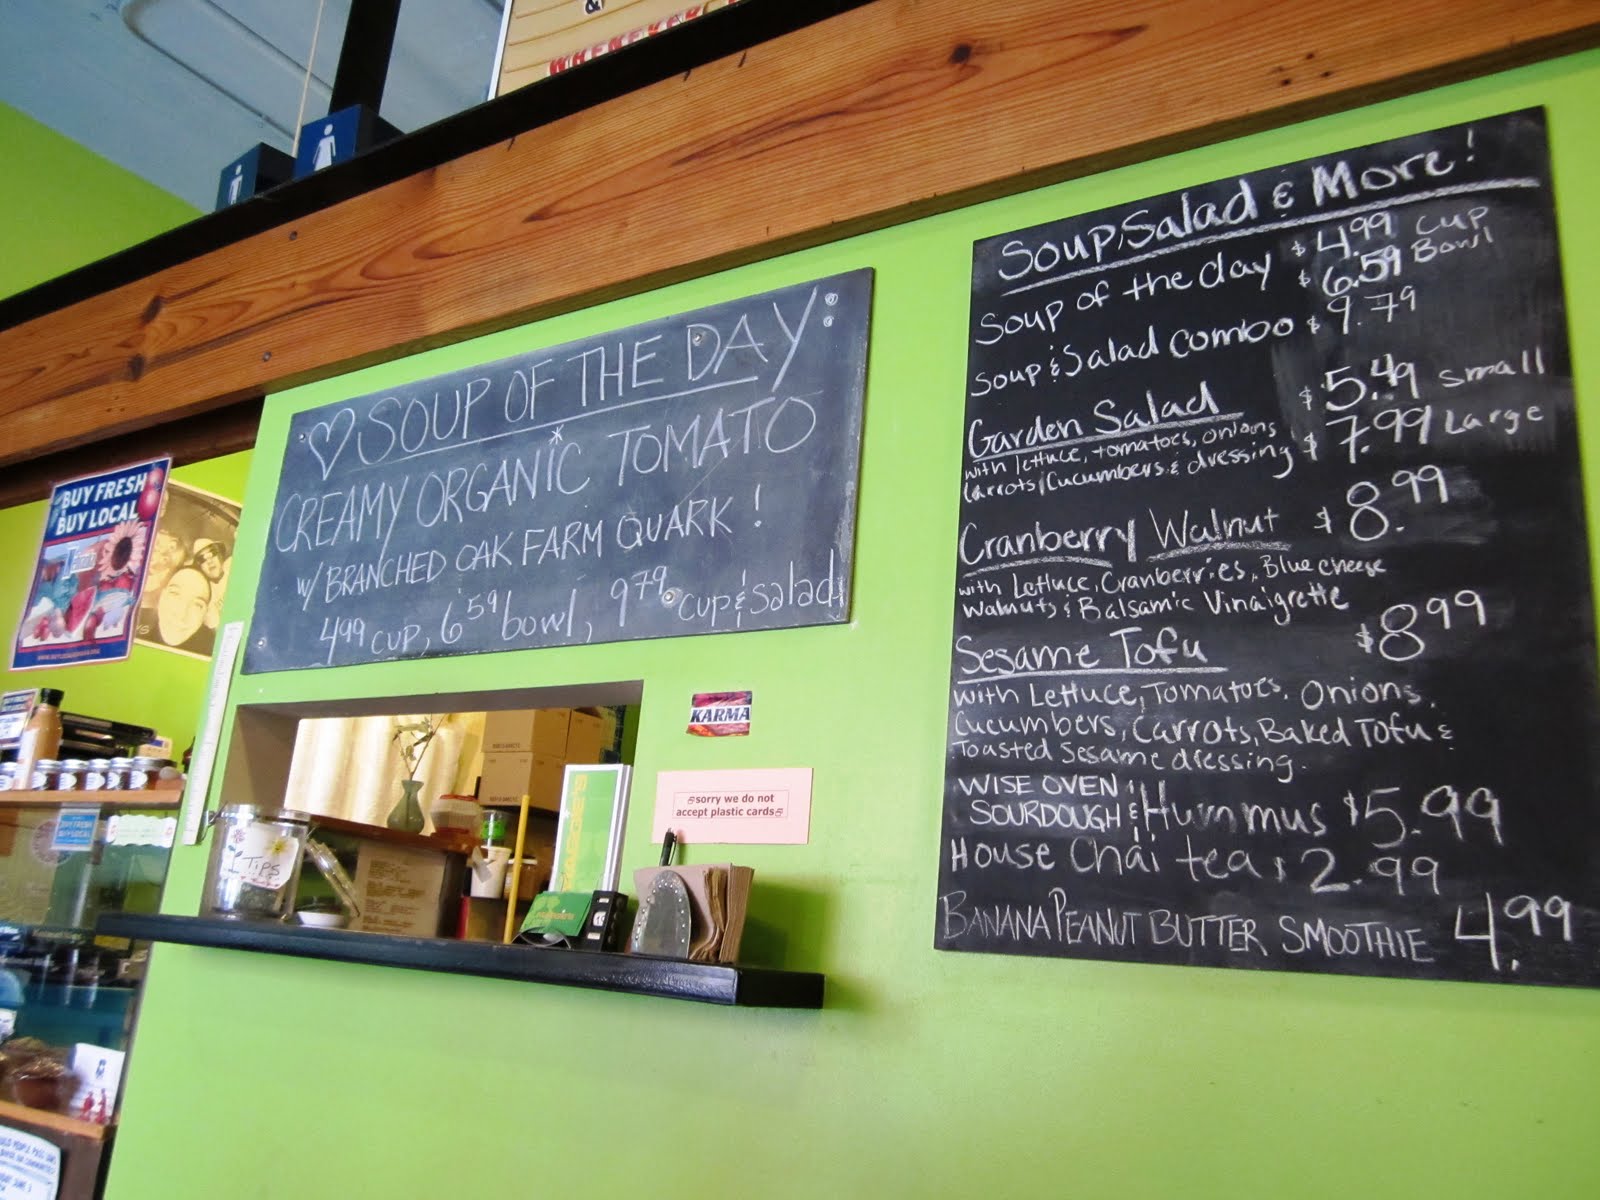 &
WHENEVER
♡ SOUP OF THE DAY:
CREAMY ORGANIC* TOMATO
W/ BRANCHED OAK FARM QUARK!
4.99 CUP, 6.59 bowl, 9.79 cup & salad
Soup, Salad & More!
Soup of the day $4.99 Cup
$6.59 Bowl
Soup & Salad combo $9.79
Garden Salad $5.49 Small
with lettuce, tomatoes, onions
Carrots, Cucumbers & dressing $7.99 Large
Cranberry Walnut $8.99
with Lettuce, Cranberries, Blue cheese
Walnuts & Balsamic Vinaigrette
Sesame Tofu $8.99
with Lettuce, Tomatoes, Onions,
Cucumbers, Carrots, Baked Tofu &
Toasted Sesame dressing.
WISE OVEN
SOURDOUGH & Hummus $5.99
House Chai tea $2.99
BANANA PEANUT BUTTER SMOOTHIE 4.99
BUY FRESH
BUY LOCAL
KARMA
sorry we do not
accept plastic cards
Tips
BUY FRESH
BUY LOCAL